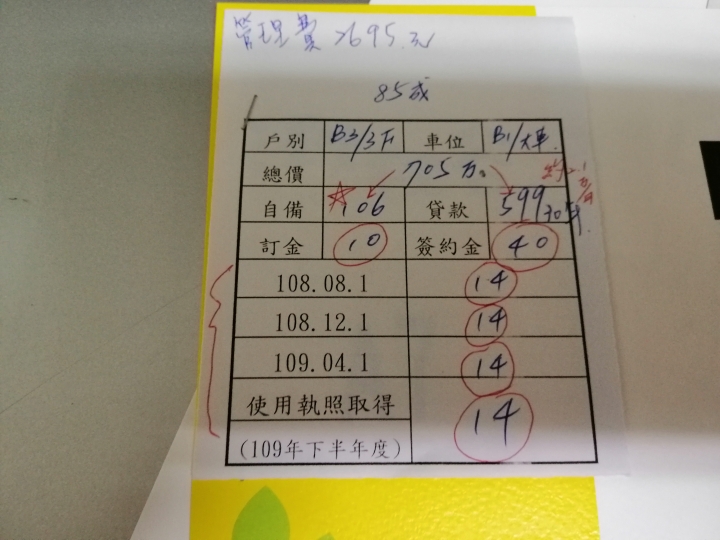 管理費 2695元
85成
戶別 B3/3F 車位 B1/大車
總價 705萬
自備 106 貸款 599 30年
訂金 10 簽約金 40
108.08.1 14
108.12.1 14
109.04.1 14
使用執照取得 14
(109年下半年度)